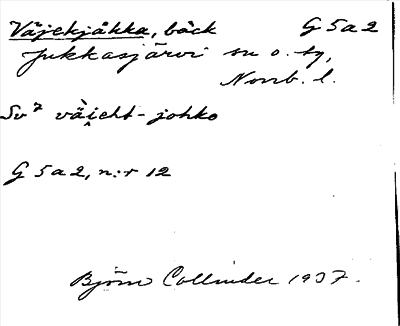 Väjekjåkka, bäck G 5a2
Jukkasjärvi sn o. tg,
Norrb. l.
Sv⁷ väi̯eht-johko
G 5a2, n:r 12
Björn Collinder 1937.